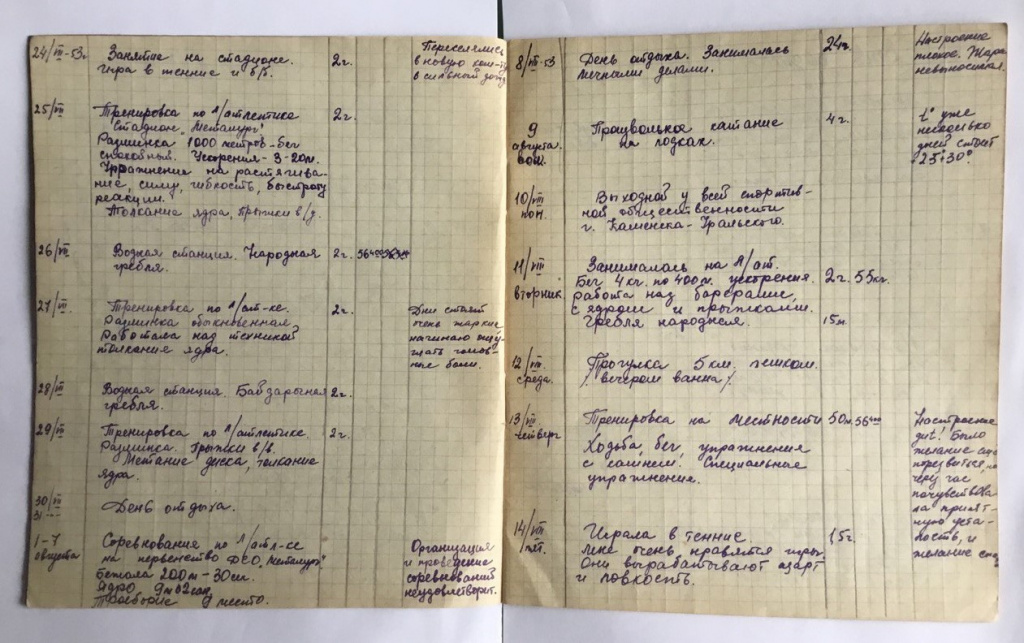 24/VII-53г. Занятие на стадионе. 2г. Переселялись
игра в теннис и б/б. в новую
в сильный дождь
25/VII Тренировка по л/атлетике 2г.
Стадион "Металург"
Разминка 1000 метров - бег
спокойный. Ускорения - 3-20м.
Упражнения на растягива-
ние, силу, гибкость, быстроту
реакции.
Толкание ядра. Прыжки в/д.
26/VII Водная станция. Народная 2г.
гребля.
27/VII Тренировка по л/ат-ке. 2г. Дни стоят
Разминка обыкновенная. жаркие
Работала над техникой начинаю ощу-
толкания ядра. щать голов-
ные боли.
28/VII Водная станция. Байдарочная 2г.
гребля.
29/VII Тренировка по л/атлетике. 2г.
Разминка. Прыжки в/в.
Метание диска, толкание
ядра.
30/VII День отдыха.
31
1-7 Соревнование по л/атл-ке Организация
августа на первенство ДСО "Металург" и проведение
бежала 200м - 30сек. соревнований
Ядро 9м02сан. неудовлетворит.
место.
8/VIII-53 День отдыха. Занималась 24г. Настроение
личными делами. плохое. Жара
невыносимая.
9 Произвольное катание 4г. t° уже
августа на лодках. несколько
дней стоит
25°+30°
10/VIII Выходной у всей спортив-
пон. ной общественности
г. Каменска-Уральского.
11/VIII Занималась на л/ат.
вторник Бег 4кг. по 400м. ускорения 2г. 55кг.
работа над барерами,
с ядром и прыжками.
Гребля народная. 15м.
12/VIII Прогулка 5км. пешком.
среда. /вечером ванна/
13/VIII Тренировка на местности 50м. Настроение
четверг Было
Ходьба, бег, упражнения желание
с камнем. Специальное
упражнения. через час
почувствова
ла прият-
ную уста-
лость, и
желание
14/VIII Играла в теннис. 1,5г.
пят. Мне очень нравятся игры.
Они вырабатывают азарт
и ловкость.